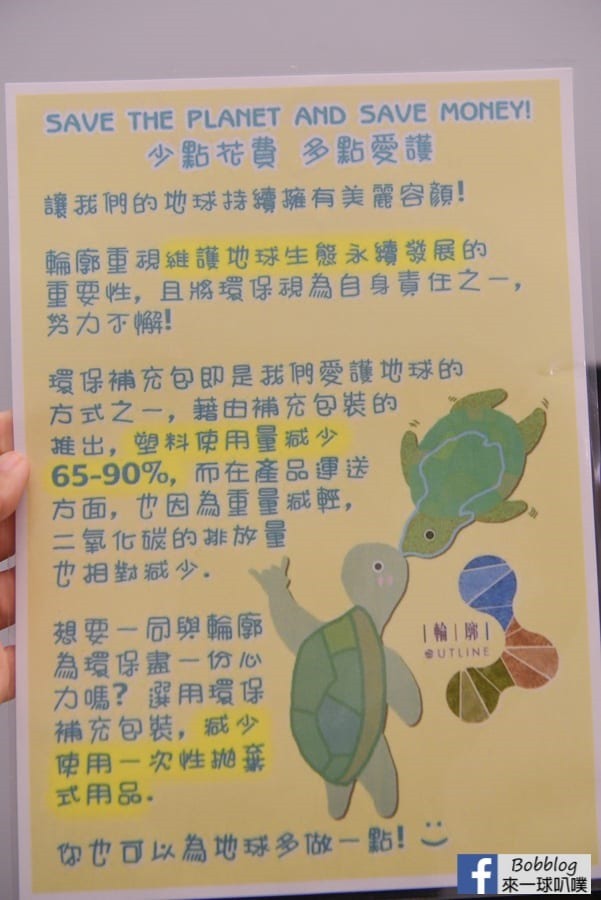 SAVE THE PLANET AND SAVE MONEY!
少點花費 多點愛護
讓我們的地球持續擁有美麗容顏!
輪廓重視維護地球生態永續發展的
重要性，且將環保視為自身責任之一，
努力不懈!
環保補充包即是我們愛護地球的
方式之一，藉由補充包裝的
推出，塑料使用量減少
65-90%，而在產品運送
方面，也因為重量減輕，
二氧化碳的排放量
也相對減少.
想要一同與輪廓
為環保盡一份心
力嗎? 選用環保
補充包裝，減少
使用一次性拋棄
式用品.
你也可以為地球多做一點! :)
|輪|廓|
OUTLINE
Bobblog
來一球叭噗